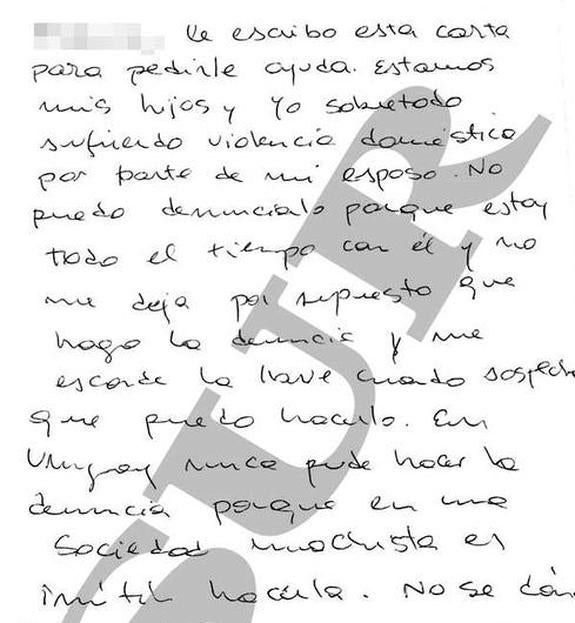 Le escribo esta carta
para pedirle ayuda. Estamos
mis hijos y yo sobretodo
sufriendo violencia doméstica
por parte de mi esposo. No
puedo denuncialo porque estoy
todo el tiempo con él y no
me deja por supuesto que
haga la denuncia y me
esconde la llave cuando sospecha
que puedo hacerlo. En
Uruguay nunca pude hacer la
denuncia porque en una
sociedad machista es
inútil hacerla. No se cóm
SUR